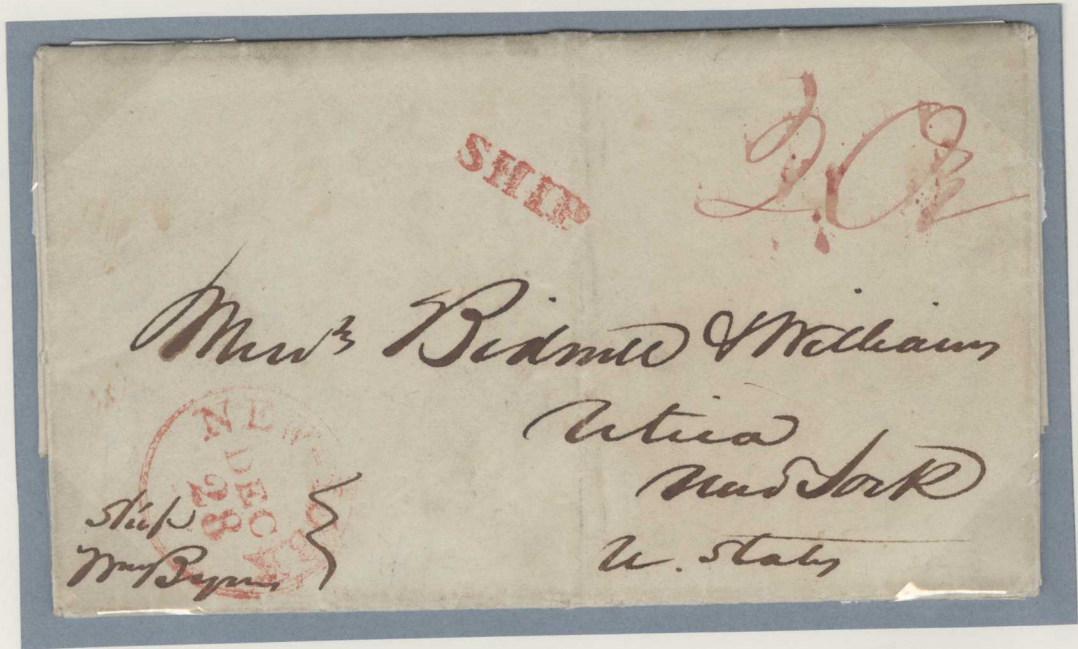 SHIP
20½
Mess's Bidwell & Williams
Utica
New York
U. States
NEW YORK
DEC
28
Ship
Wm Byrnes